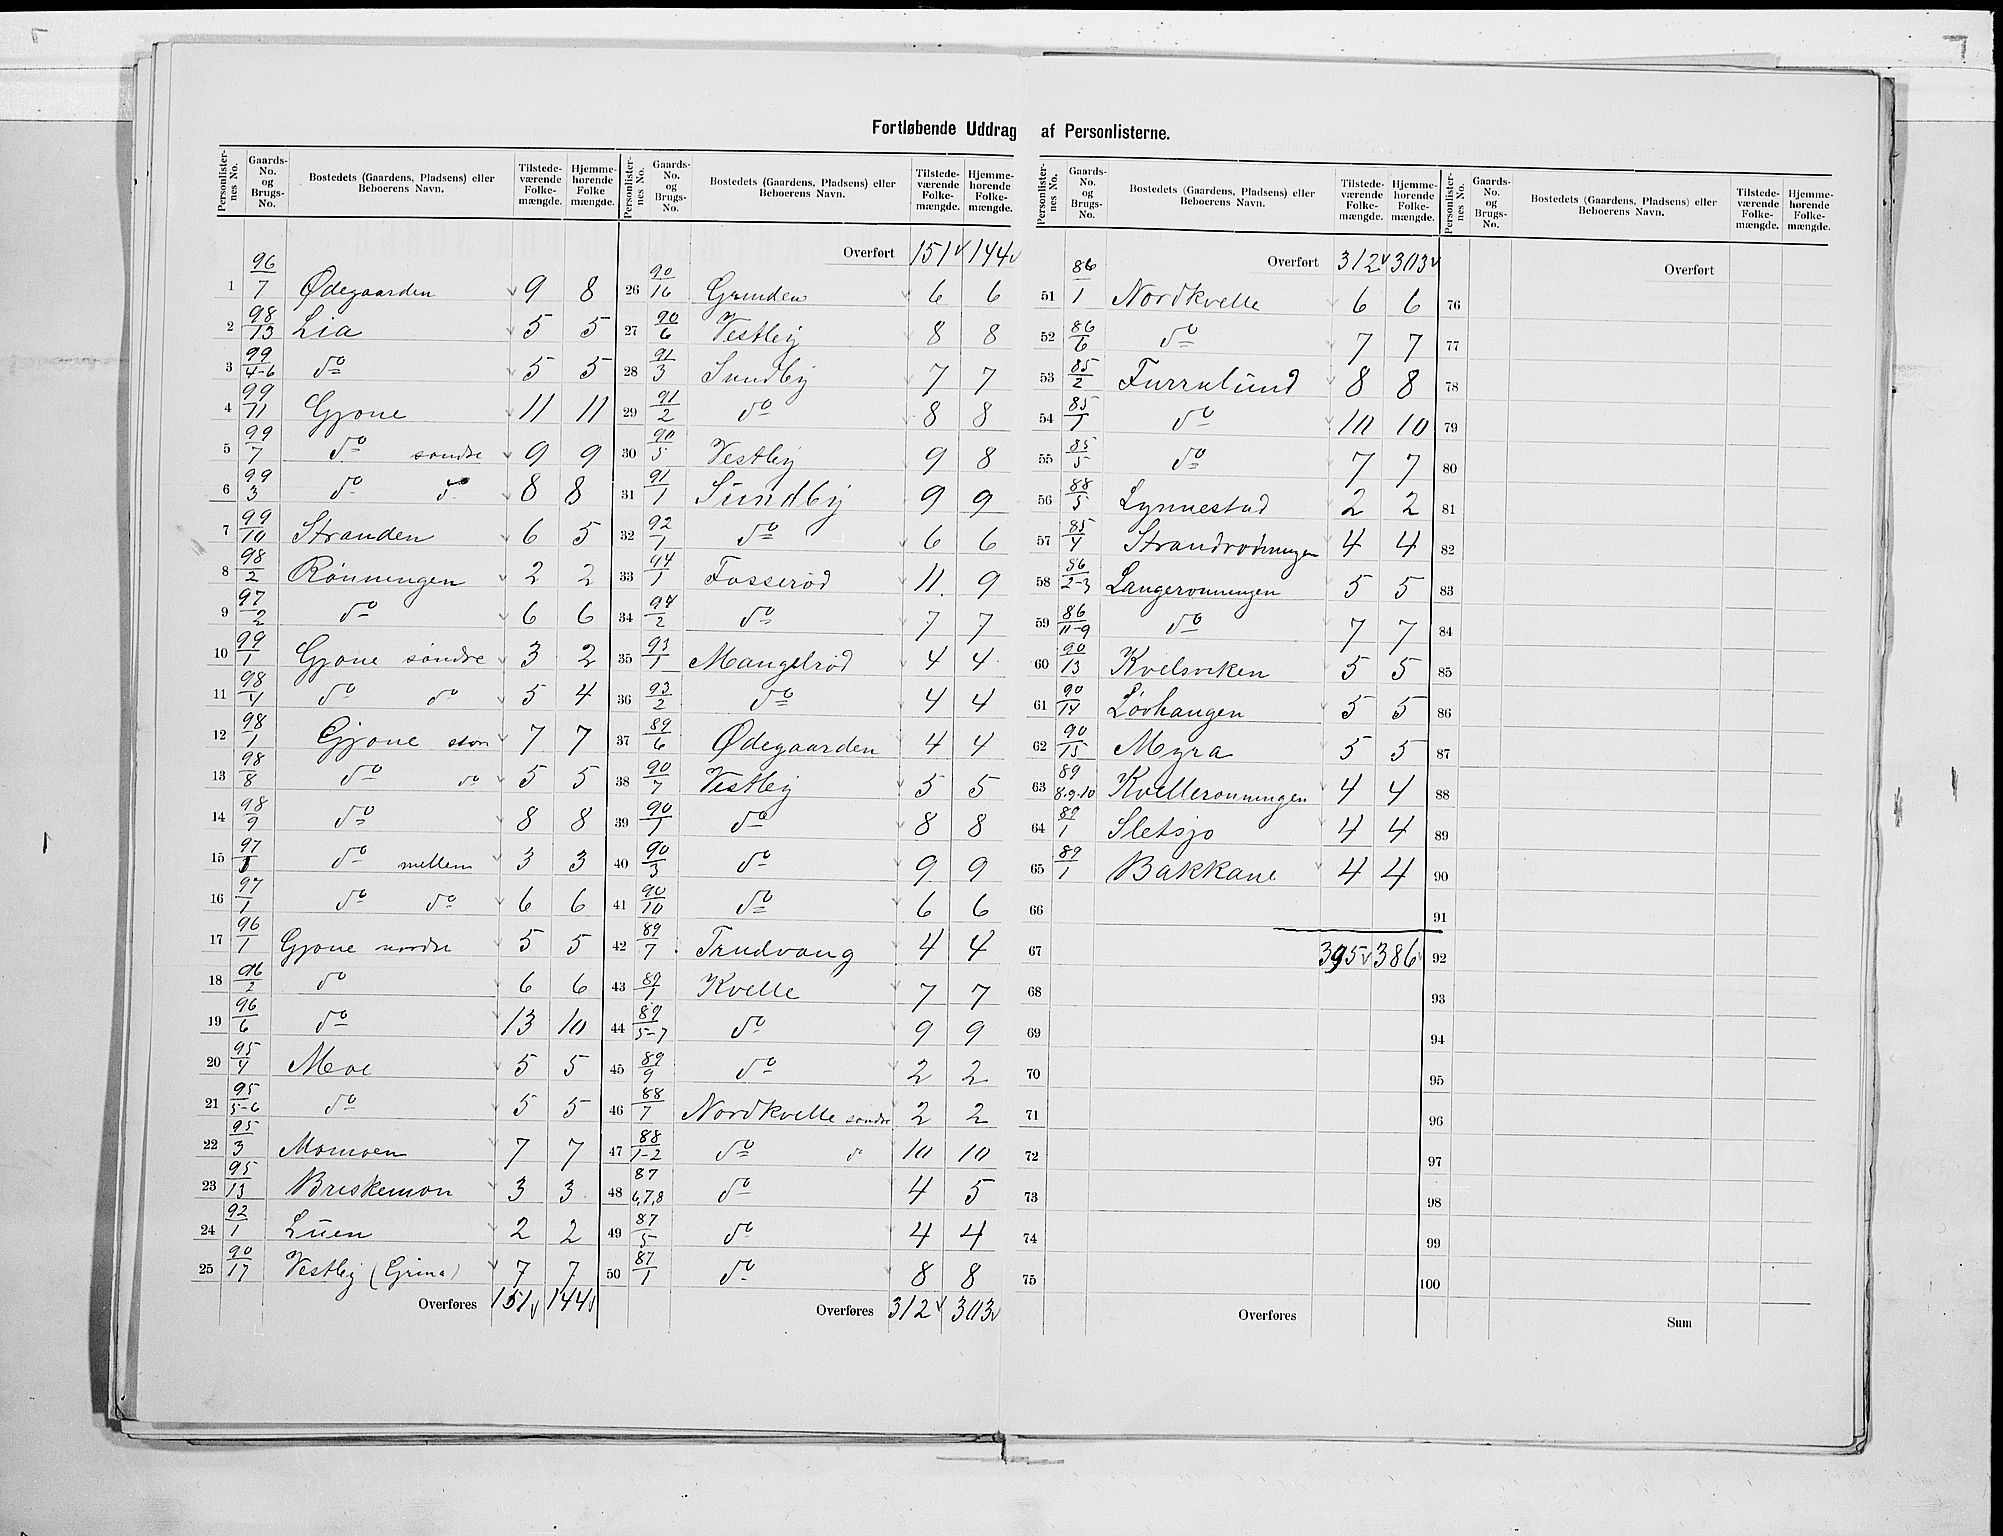 Fortløbende Uddrag af Personlisterne.
Personlister-nes No. | Gaards-No. og Brugs-No. | Bostedets (Gaardens, Pladsens) eller Beboerens Navn. | Tilstede-værende Folke-mængde. | Hjemme-hørende Folke mængde.
1 96/7 Ødegaarden 9 8
2 98/13 Lia 5 5
3 99/4-6 do 5 5
4 99/11 Gjone 11 11
5 99/7 do søndre 9 9
6 99/3 do do 8 8
7 99/10 Stranden 6 5
8 98/2 Rønningen 2 2
9 97/2 do 6 6
10 99/1 Gjone søndre 3 2
11 98/4 do do 5 4
12 98/1 Gjone 7 7
13 98/8 do do 5 5
14 98/9 do 8 8
15 do mellem 3 3
16 97/1 do do 6 6
17 96/1 Gjone nordre 5 5
18 96/2 do 6 6
19 96/6 do 13 10
20 95/4 Moe 5 5
21 95/5-6 do 5 5
22 95/3 Momoen 7 7
23 95/13 Briskemon 3 3
24 92/1 Luen 2 2
25 90/17 Vestby (Grina) 7 7
Overføres 151 144
Personlister-nes No. | Gaards-No. og Brugs-No. | Bostedets (Gaardens, Pladsens) eller Beboerens Navn. | Tilstede-værende Folke-mængde. | Hjemme-hørende Folke-mængde.
Overført 151 144
26 90/16 Grinden 6 6
27 90/6 Vestby 8 8
28 91/3 Sundby 7 7
29 91/2 do 8 8
30 90/5 Vestby 9 8
31 91/1 Sundby 9 9
32 92/1 do 6 6
33 94/1 Fosserød 11 9
34 94/2 do 7 7
35 93/1 Mangelrød 4 4
36 93/2 do 4 4
37 89/6 Ødegaarden 4 4
38 90/7 Vestby 5 5
39 90/1 do 8 8
40 90/3 do 9 9
41 90/10 do 6 6
42 89/7 Trudvang 4 4
43 89/1 Kvelle 7 7
44 89/5-7 do 9 9
45 89/9 do 2 2
46 88/7 Nordkvelle søndre 2 2
47 88/1-2 do do 10 10
48 87/6,7,8 do 4 5
49 87/5 do 4 4
50 87/1 do 8 8
Overføres 312 303
Personlister-nes No. | Gaards-No. og Brugs-No. | Bostedets (Gaardens, Pladsens) eller Beboerens Navn. | Tilstede-værende Folke-mængde. | Hjemme-hørende Folke-mængde.
Overført 312 303
51 86/1 Nordkvelle 6 6
52 86/6 do 7 7
53 85/2 Furrulund 8 8
54 85/1 do 10 10
55 85/5 do 7 7
56 88/5 Lynnestad 2 2
57 85/4 Strandrødningen 4 4
58 2-3 Langerønningen 5 5
59 86/11-9 do 7 7
60 90/13 Kvelsviken 5 5
61 90/14 Løvhaugen 5 5
62 90/15 Myra 5 5
63 89/8.9.10 Kvellerønningen 4 4
64 89/1 Sletsjo 4 4
65 89/1 Bakkane 4 4
66
67 395 386
68
69
70
71
72
73
74
75
Overføres
Personlister-nes No. | Gaards-No. og Brugs-No. | Bostedets (Gaardens, Pladsens) eller Beboerens Navn. | Tilstede-værende Folke-mængde. | Hjemme-hørende Folke-mængde.
Overført
76
77
78
79
80
81
82
83
84
85
86
87
88
89
90
91
92
93
94
95
96
97
98
99
100
Sum